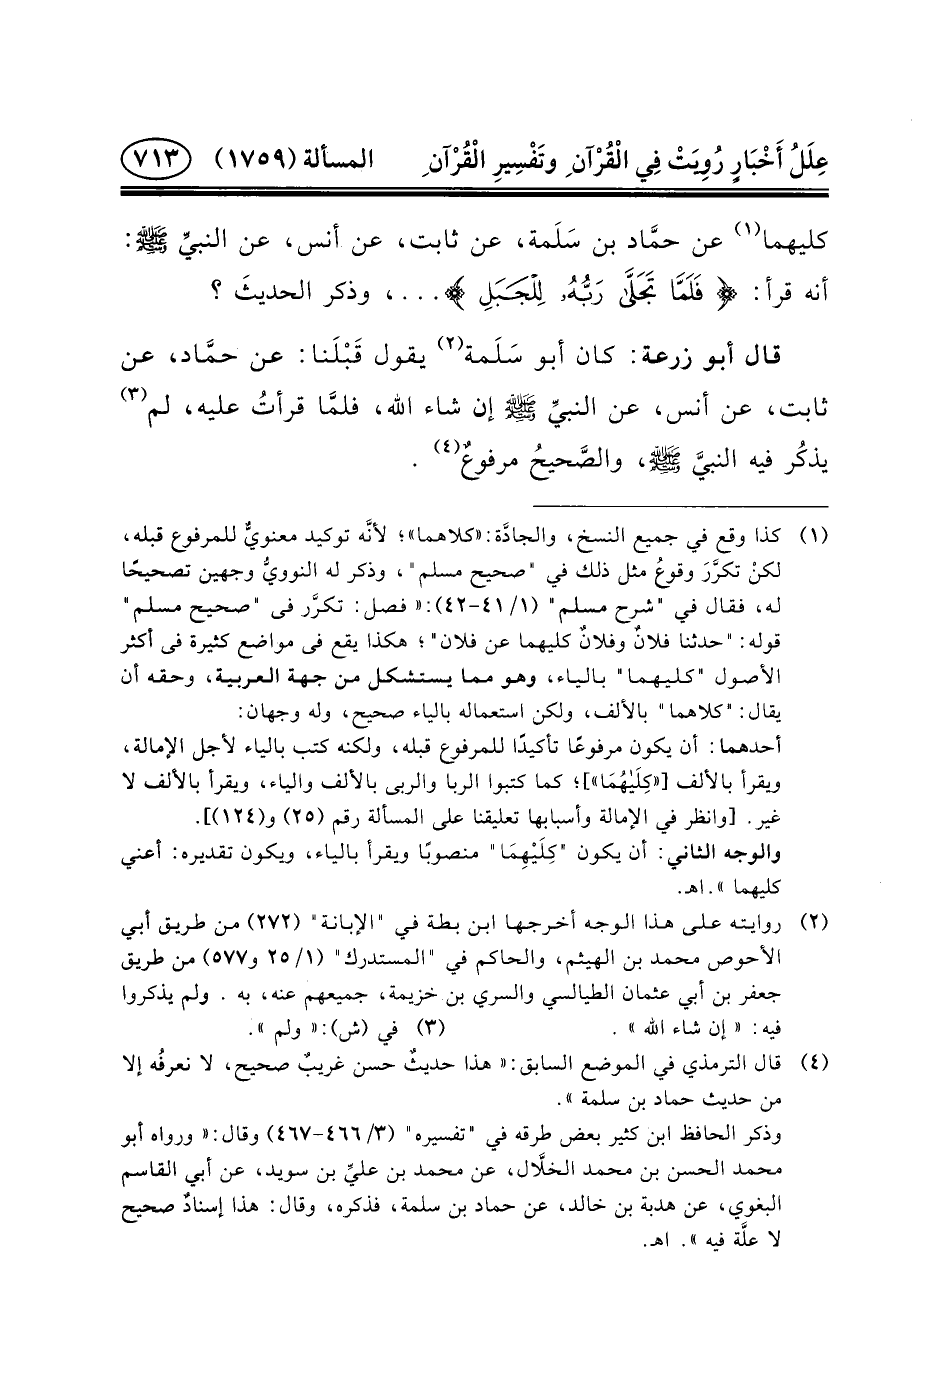 عِلَلُ أَخْبَارٍ رُوِيَتْ فِي الْقُرْآنِ وتَفْسِيرِ الْقُرْآنِ المسألة (١٧٥٩) ٧١٣
كليهما(١) عن حمَّاد بن سَلَمة، عن ثابت، عن أنس، عن النبيِّ ﷺ:
أنه قرأ: ﴿ فَلَمَّا تَجَلَّىٰ رَبُّهُۥ لِلْجَبَلِ ﴾...، وذكر الحديثَ ؟
قال أبو زرعة: كان أبو سَلَمة(٢) يقول قَبْلَنا: عن حمَّاد، عن
ثابت، عن أنس، عن النبيِّ ﷺ إن شاء الله، فلمَّا قرأتُ عليه، لم(٣)
يذكُر فيه النبيَّ ﷺ، والصَّحيحُ مرفوعٌ(٤) .
(١) كذا وقع في جميع النسخ، والجادَّة:«كلاهما»؛ لأنَّه توكيد معنويٌّ للمرفوع قبله،
لكنْ تكرَّرَ وقوعُ مثل ذلك في "صحيح مسلم"، وذكر له النوويُّ وجهين تصحيحًا
له، فقال في "شرح مسلم" (١/ ٤١-٤٢):« فصل: تكرَّر فى "صحيح مسلم"
قوله: "حدثنا فلانٌ وفلانٌ كليهما عن فلان" ؛ هكذا يقع فى مواضع كثيرة فى أكثر
الأصول "كليهما" بالياء، وهو مما يستشكل من جهة العربية، وحقه أن
يقال: "كلاهما" بالألف، ولكن استعماله بالياء صحيح، وله وجهان:
أحدهما: أن يكون مرفوعًا تأكيدًا للمرفوع قبله، ولكنه كتب بالياء لأجل الإمالة،
ويقرأ بالألف [«كِلَيْهُمَا»]؛ كما كتبوا الربا والربى بالألف والياء، ويقرأ بالألف لا
غير. [وانظر في الإمالة وأسبابها تعليقنا على المسألة رقم (٢٥) و(١٢٤)].
والوجه الثاني: أن يكون "كِلَيْهِمَا" منصوبًا ويقرأ بالياء، ويكون تقديره: أعني
كليهما ».اهـ.
(٢) روايته على هذا الوجه أخرجها ابن بطة في "الإبانة" (٢٧٢) من طريق أبي
الأحوص محمد بن الهيثم، والحاكم في "المستدرك" (١/ ٢٥ و٥٧٧) من طريق
جعفر بن أبي عثمان الطيالسي والسري بن خزيمة، جميعهم عنه، به . ولم يذكروا
فيه: « إن شاء الله » . (٣) في (ش):« ولم ».
(٤) قال الترمذي في الموضع السابق:« هذا حديثٌ حسن غريبٌ صحيح، لا نعرفُه إلا
من حديث حماد بن سلمة ».
وذكر الحافظ ابن كثير بعض طرقه في "تفسيره" (٣/ ٤٦٦-٤٦٧) وقال:« ورواه أبو
محمد الحسن بن محمد الخلَّال، عن محمد بن عليِّ بن سويد، عن أبي القاسم
البغوي، عن هدبة بن خالد، عن حماد بن سلمة، فذكره، وقال: هذا إسنادٌ صحيح
لا علَّة فيه ». اهـ.